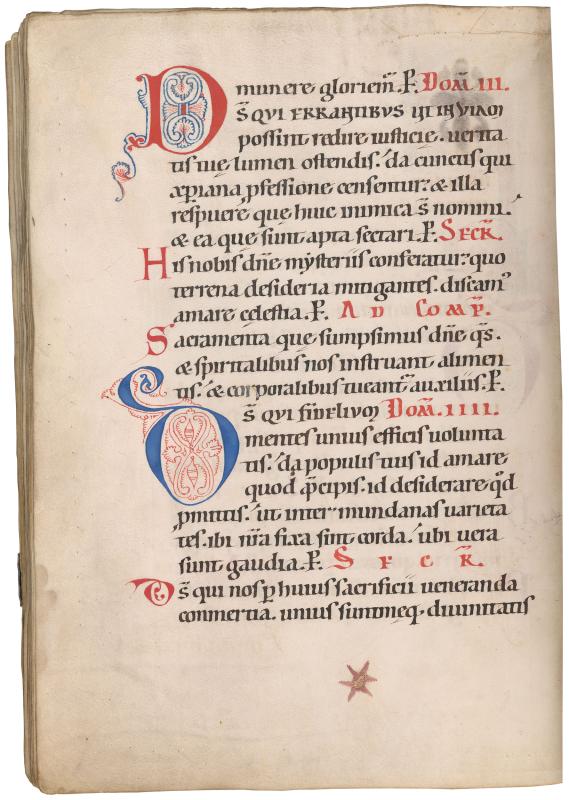 munere gloriem̃. P̱. Dom̃. III.
D s̃ QUI ERRANTIBUS UT IN VIAM
possint redire iusticię. uerita
tis tuę lumen ostendis. da cunctis qui
xp̃iana p̱fessione censentur. & illa
respuere que huic inimica s̃ nomini.
& ea quę sunt apta sectari. P̱. SECR̃.
His nobis dñe mẏsteriis conferatur. quo
terrena desideria mitigantes. discam᾽
amare cęlestia. P̱. AD COMP̃.
Sacramenta quę sumpsimus dñe q̃s.
& spiritalibus nos instruant alimen
tis. & corporalibus tueant᾽ auxiliis. P̱.
D s̃ QUI FIDELIUM Dom̃. IIII.
mentes unius efficis uolunta
tis. da populis tuis id amare
quod p̃cipis. id desiderare q̃d
p̱mittis. ut inter mundanas uarieta
tes. ibi nr̃a fixa sint corda. ubi uera
sunt gaudia. P̱. SECR̃.
D s̃ qui nos p̱ huius sacrificii ueneranda
commertia. unius summęq; diuinitatis